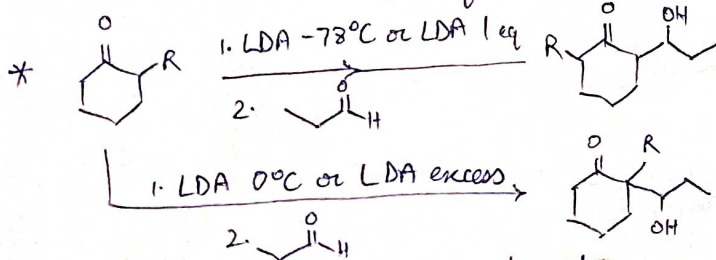 O OH
* R 1. LDA -78°C or LDA 1 eq R O
2. O H
O R
1. LDA 0°C or LDA excess
2. O H OH